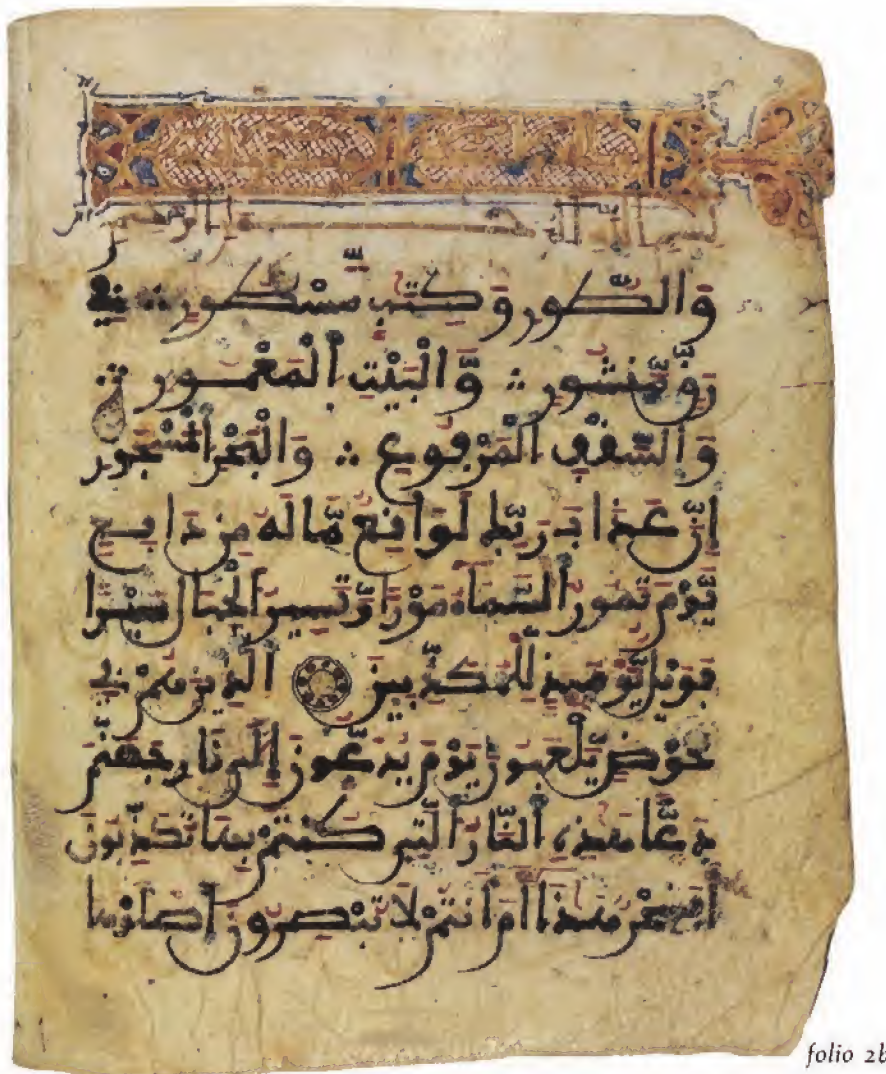 بسم الله الرحمن الرحيم
وَالطُّورِ وَكِتَٰبٍ مَّسْطُورٍ فِي
رَقٍّ مَّنشُورٍ وَالْبَيْتِ الْمَعْمُورِ
وَالسَّقْفِ الْمَرْفُوعِ وَالْبَحْرِ الْمَسْجُورِ
اِنَّ عَذَابَ رَبِّكَ لَوَاقِعٌ مَّا لَهُ مِن دَافِعٍ
يَّوْمَ تَمُورُ السَّمَآءُ مَوْرًا وَّتَسِيرُ الْجِبَالُ سَيْرًا
فَوَيْلٌ يَّوْمَئِذٍ لِّلْمُكَذِّبِينَ الَّذِينَ هُمْ فِي
خَوْضٍ يَّلْعَبُونَ يَوْمَ يُدَعُّونَ إِلَىٰ نَارِ جَهَنَّمَ
دَعًّا هَٰذِهِ النَّارُ الَّتِي كُنتُم بِهَا تُكَذِّبُونَ
اَفَسِحْرٌ هَٰذَا أَمْ أَنتُمْ لَا تُبْصِرُونَ اصْلَوْهَا
folio 2b